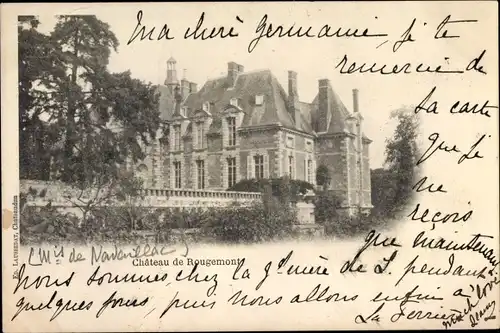 Ma chère Germaine, je te
remercie de
la carte
que je
ne
reçois
que maintenant
Château de Rougemont
Nous sommes chez la g de S. pendant
quelques jours, puis nous allons enfin à
la Ferrière